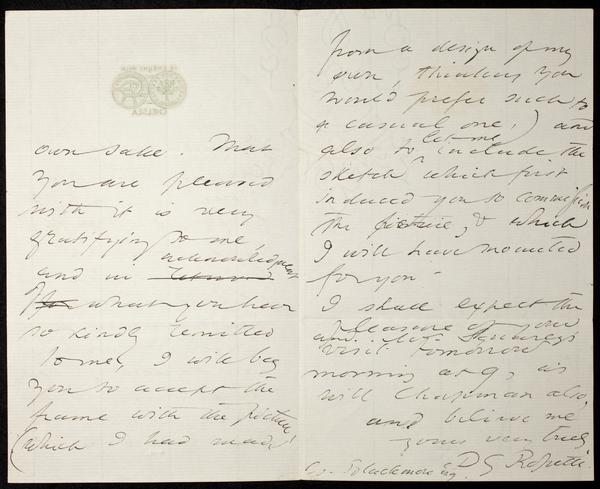 16 CHEYNE WALK
CHELSEA
own sake. That
you are pleased
with it is very
gratifying to me,
and in return acknowledgment
for of what you have
so kindly remitted
to me, I will beg
you to accept the
frame with the picture
(which I had made
from a design of my
own, thinking you
would prefer such to
a casual one,) and
also to let me include the
sketch which first
induced you to commission
the picture, & which
I will have mounted
for you.
I shall expect the
pleasure of your
and Mr.
visit tomorrow
morning at 9, as
will Chapman also,
and believe me
yours very truly
D G Rossetti